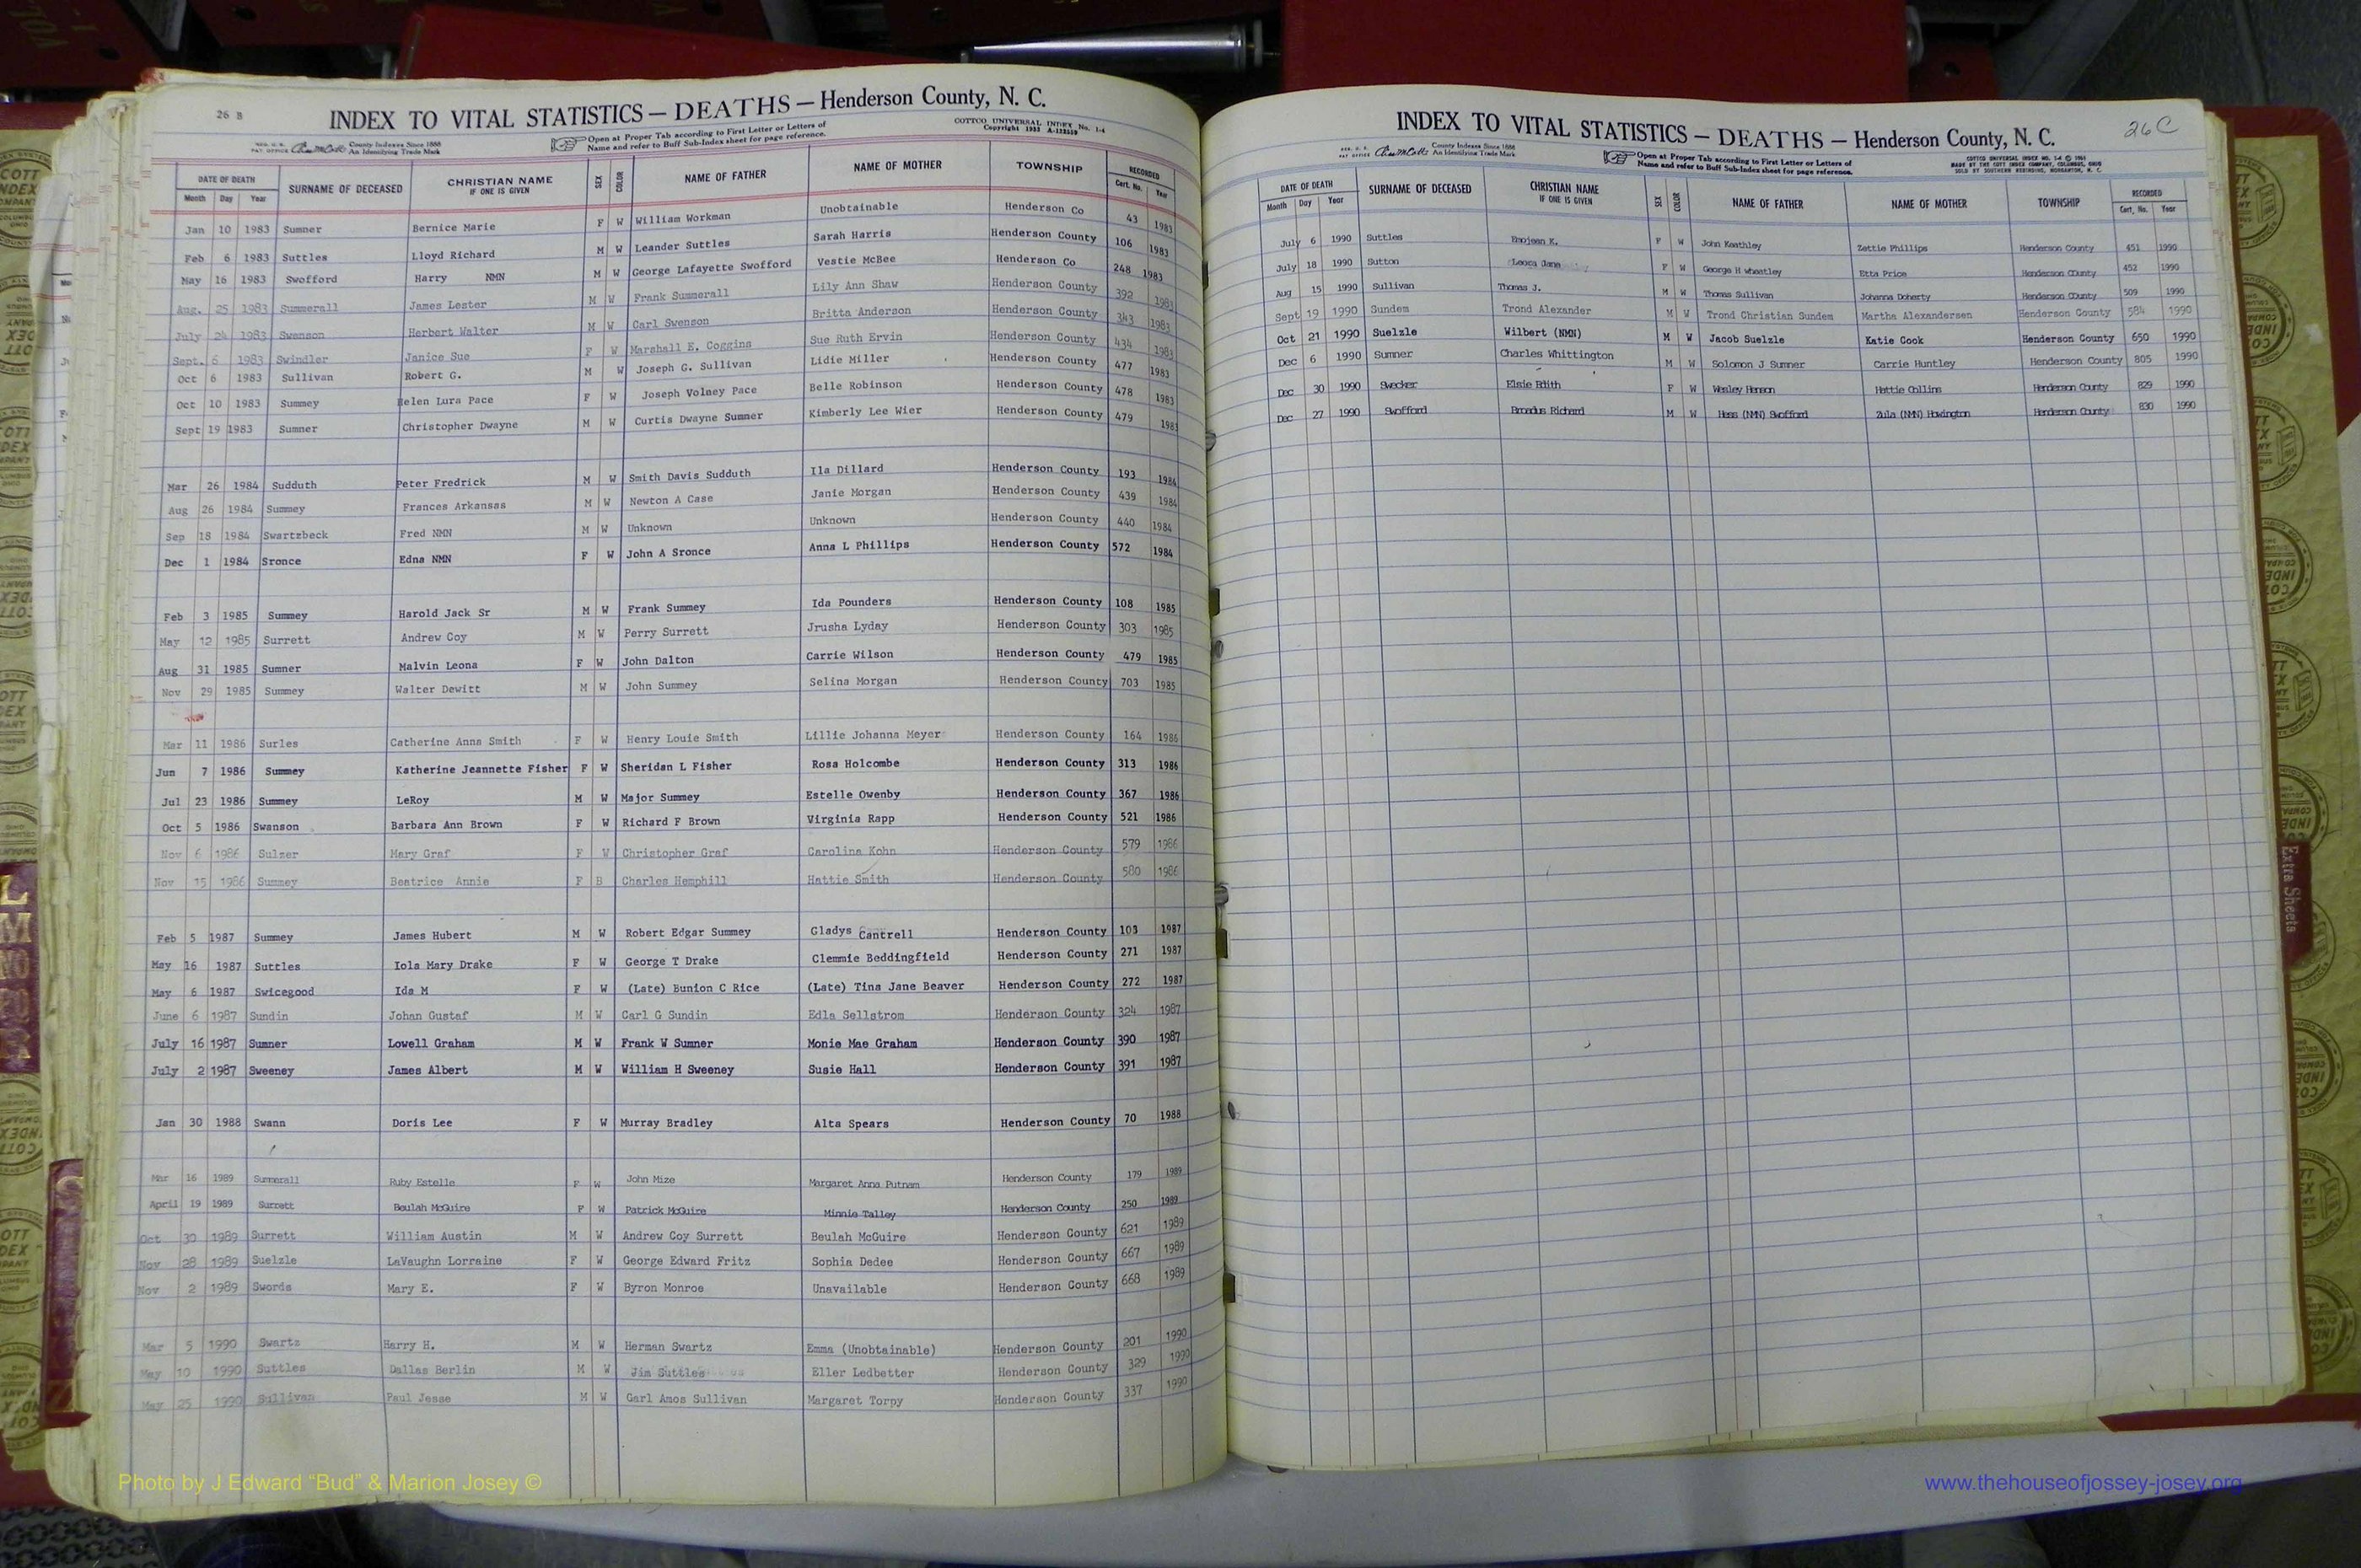 26 B
INDEX TO VITAL STATISTICS — DEATHS — Henderson County, N. C.
County Indexes Since 1888
An Identifying Trade Mark
Open at Proper Tab according to First Letter or Letters of
Name and refer to Buff Sub-Index sheet for page reference.
COTTCO UNIVERSAL INDEX No. 1-4
DATE OF DEATH SURNAME OF DECEASED CHRISTIAN NAME IF ONE IS GIVEN SEX COLOR NAME OF FATHER NAME OF MOTHER TOWNSHIP RECORDED
Month Day Year Cert. No. Year
Jan 10 1983 Sumner Bernice Marie F W William Workman Unobtainable Henderson Co 43 1983
Feb 6 1983 Suttles Lloyd Richard M W Leander Suttles Sarah Harris Henderson County 106 1983
May 16 1983 Swofford Harry NMN M W George Lafayette Swofford Vestie McBee Henderson Co 248 1983
Aug. 25 1983 Summerall James Lester M W Frank Summerall Lily Ann Shaw Henderson County 392 1983
July 24 1983 Swanson Herbert Walter M W Carl Swenson Britta Anderson Henderson County 343 1983
Sept. 6 1983 Swindler Janice Sue F W Marshall E. Coggins Sue Ruth Ervin Henderson County 434 1983
Oct 6 1983 Sullivan Robert G. M W Joseph G. Sullivan Lidie Miller Henderson County 477 1983
Oct 10 1983 Summey Helen Lura Pace F W Joseph Volney Pace Belle Robinson Henderson County 478 1983
Sept 19 1983 Sumner Christopher Dwayne M W Curtis Dwayne Sumner Kimberly Lee Wier Henderson County 479 1983
Mar 26 1984 Sudduth Peter Fredrick M W Smith Davis Sudduth Ila Dillard Henderson County 193 1984
Aug 26 1984 Summey Frances Arkansas M W Newton A Case Janie Morgan Henderson County 439 1984
Sep 18 1984 Swartzbeck Fred NMN M W Unknown Unknown Henderson County 440 1984
Dec 1 1984 Sronce Edna NMN F W John A Sronce Anna L Phillips Henderson County 572 1984
Feb 3 1985 Summey Harold Jack Sr M W Frank Summey Ida Pounders Henderson County 108 1985
May 12 1985 Surrett Andrew Coy M W Perry Surrett Jrusha Lyday Henderson County 303 1985
Aug 31 1985 Sumner Malvin Leona F W John Dalton Carrie Wilson Henderson County 479 1985
Nov 29 1985 Summey Walter Dewitt M W John Summey Selina Morgan Henderson County 703 1985
Mar 11 1986 Surles Catherine Anna Smith F W Henry Louie Smith Lillie Johanna Meyer Henderson County 164 1986
Jun 7 1986 Summey Katherine Jeannette Fisher F W Sheridan L Fisher Rosa Holcombe Henderson County 313 1986
Jul 23 1986 Summey LeRoy M W Major Summey Estelle Owenby Henderson County 367 1986
Oct 5 1986 Swanson Barbara Ann Brown F W Richard F Brown Virginia Rapp Henderson County 521 1986
Nov 6 1986 Sulzer Mary Graf F W Christopher Graf Carolina Kohn Henderson County 579 1986
Nov 15 1986 Summey Beatrice Annie F B Charles Hemphill Hattie Smith Henderson County 580 1986
Feb 5 1987 Summey James Hubert M W Robert Edgar Summey Gladys Cantrell Henderson County 103 1987
May 16 1987 Suttles Iola Mary Drake F W George T Drake Clemmie Beddingfield Henderson County 271 1987
May 6 1987 Swicegood Ida M F W (Late) Bunion C Rice (Late) Tina Jane Beaver Henderson County 272 1987
June 6 1987 Sundin Johan Gustaf M W Carl G Sundin Edla Sellstrom Henderson County 324 1987
July 16 1987 Sumner Lowell Graham M W Frank W Sumner Monie Mae Graham Henderson County 390 1987
July 2 1987 Sweeney James Albert M W William H Sweeney Susie Hall Henderson County 391 1987
Jan 30 1988 Swann Doris Lee F W Murray Bradley Alta Spears Henderson County 70 1988
Mar 16 1989 Summerall Ruby Estelle F W John Mize Margaret Anna Putnam Henderson County 179 1989
April 19 1989 Surrett Beulah McGuire F W Patrick McGuire Minnie Talley Henderson County 250 1989
Oct 30 1989 Surrett William Austin M W Andrew Coy Surrett Beulah McGuire Henderson County 621 1989
Nov 28 1989 Suelzle LaVaughn Lorraine F W George Edward Fritz Sophia Dedee Henderson County 667 1989
Nov 2 1989 Swords Mary E. F W Byron Monroe Unavailable Henderson County 668 1989
Mar 5 1990 Swartz Harry H. M W Herman Swartz Emma (Unobtainable) Henderson County 201 1990
May 10 1990 Suttles Dallas Berlin M W Jim Suttles Eller Ledbetter Henderson County 329 1990
May 25 1990 Sullivan Paul Jesse M W Carl Amos Sullivan Margaret Torpy Henderson County 337 1990
26C
INDEX TO VITAL STATISTICS — DEATHS — Henderson County, N. C.
County Indexes Since 1888
An Identifying Trade Mark
Open at Proper Tab according to First Letter or Letters of
Name and refer to Buff Sub-Index sheet for page reference.
DATE OF DEATH SURNAME OF DECEASED CHRISTIAN NAME IF ONE IS GIVEN SEX COLOR NAME OF FATHER NAME OF MOTHER TOWNSHIP RECORDED
Month Day Year Cert. No. Year
July 6 1990 Suttles Emojean K. F W John Keathley Zettie Phillips Henderson County 451 1990
July 18 1990 Sutton Leora Jane F W George H Wheatley Etta Price Henderson County 452 1990
Aug 15 1990 Sullivan Thomas J. M W Thomas Sullivan Johanna Doherty Henderson County 509 1990
Sept 19 1990 Sundem Trond Alexander M W Trond Christian Sundem Martha Alexandersen Henderson County 584 1990
Oct 21 1990 Suelzle Wilbert (NMN) M W Jacob Suelzle Katie Cook Henderson County 650 1990
Dec 6 1990 Sumner Charles Whittington M W Solomon J Sumner Carrie Huntley Henderson County 805 1990
Dec 30 1990 Swecker Elsie Edith F W Wesley Henson Hattie Collins Henderson County 829 1990
Dec 27 1990 Swofford Broadus Richard M W Hess (NMN) Swofford Zula (NMN) Howington Henderson County 830 1990
Extra Sheets
Photo by J Edward “Bud” & Marion Josey ©
www.thehouseofjossey-josey.org